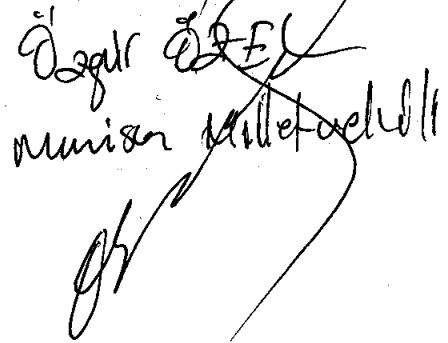 Özgür ÖZEL
Manisa Milletvekili